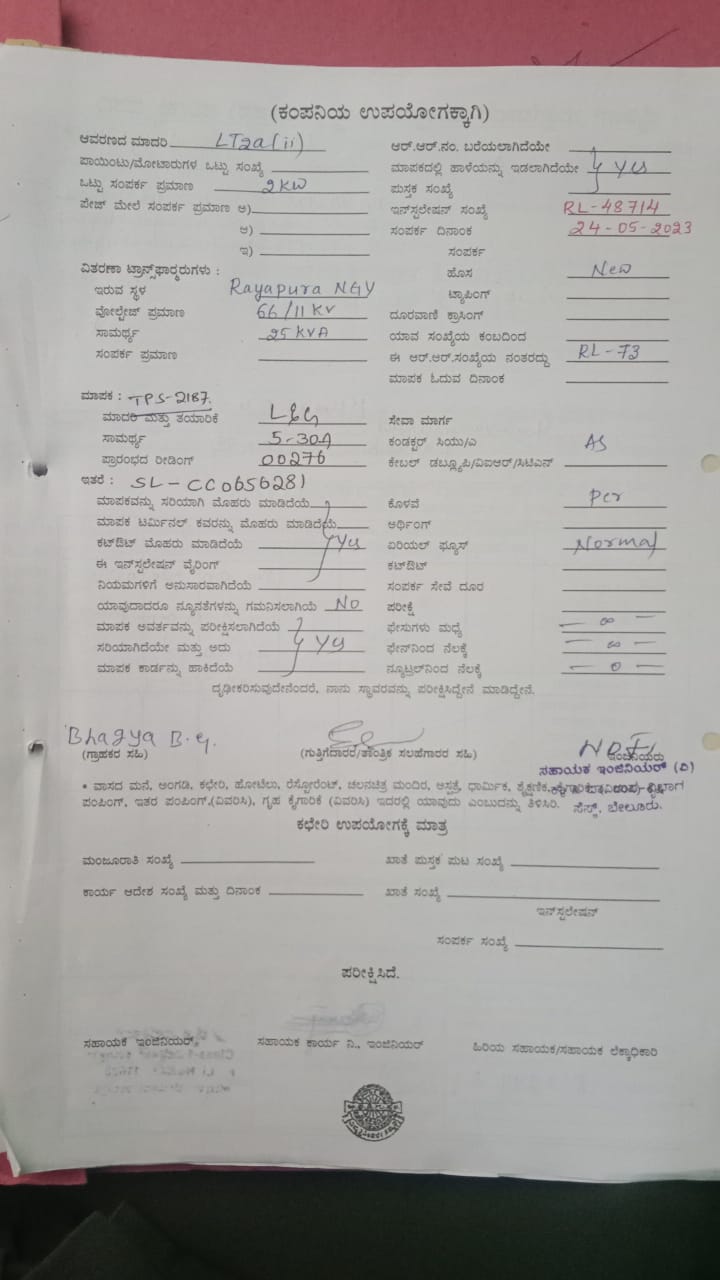 (ಕಂಪನಿಯ ಉಪಯೋಗಕ್ಕಾಗಿ)
ಆವರಣದ ಮಾದರಿ LT2a(ii)
ಪಾಯಿಂಟು/ಮೋಟಾರುಗಳ ಒಟ್ಟು ಸಂಖ್ಯೆ
ಒಟ್ಟು ಸಂಪರ್ಕ ಪ್ರಮಾಣ 2KW
ಪೇಜ್ ಮೇಲೆ ಸಂಪರ್ಕ ಪ್ರಮಾಣ ಅ)
ಆ)
ಇ)
ವಿತರಣಾ ಟ್ರಾನ್ಸ್‌ಫಾರ್ಮರುಗಳು :
ಇರುವ ಸ್ಥಳ Rayapura NGY
ವೋಲ್ಟೇಜ್ ಪ್ರಮಾಣ 66/11 KV
ಸಾಮರ್ಥ್ಯ 25 KVA
ಸಂಪರ್ಕ ಪ್ರಮಾಣ
ಮಾಪಕ : TPS-2187.
ಮಾದರಿ ಮತ್ತು ತಯಾರಿಕೆ L&G
ಸಾಮರ್ಥ್ಯ 5-30A
ಪ್ರಾರಂಭದ ರೀಡಿಂಗ್ 00276
ಇತರೆ : SL-CC0656281
ಮಾಪಕವನ್ನು ಸರಿಯಾಗಿ ಮೊಹರು ಮಾಡಿದೆಯೆ
ಮಾಪಕ ಟರ್ಮಿನಲ್ ಕವರನ್ನು ಮೊಹರು ಮಾಡಿದೆಯೆ
ಕಟ್‌ಔಟ್ ಮೊಹರು ಮಾಡಿದೆಯೆ Yes
ಈ ಇನ್‌ಸ್ಟಲೇಷನ್ ವೈರಿಂಗ್
ನಿಯಮಗಳಿಗೆ ಅನುಸಾರವಾಗಿದೆಯೆ
ಯಾವುದಾದರೂ ನ್ಯೂನತೆಗಳನ್ನು ಗಮನಿಸಲಾಗಿಯೆ No
ಮಾಪಕ ಆವರ್ತವನ್ನು ಪರೀಕ್ಷಿಸಲಾಗಿದೆಯೆ
ಸರಿಯಾಗಿದೆಯೇ ಮತ್ತು ಅದು Yes
ಮಾಪಕ ಕಾರ್ಡನ್ನು ಹಾಕಿದೆಯೆ
ಆರ್.ಆರ್.ನಂ. ಬರೆಯಲಾಗಿದೆಯೇ
ಮಾಪಕದಲ್ಲಿ ಹಾಳೆಯನ್ನು ಇಡಲಾಗಿದೆಯೇ Yes
ಪುಸ್ತಕ ಸಂಖ್ಯೆ
ಇನ್‌ಸ್ಟಲೇಷನ್ ಸಂಖ್ಯೆ RL-48714
ಸಂಪರ್ಕ ದಿನಾಂಕ 24-05-2023
ಸಂಪರ್ಕ
ಹೊಸ New
ಟ್ಯಾಪಿಂಗ್
ದೂರವಾಣಿ ಕ್ರಾಸಿಂಗ್
ಯಾವ ಸಂಖ್ಯೆಯ ಕಂಬದಿಂದ
ಈ ಆರ್.ಆರ್.ಸಂಖ್ಯೆಯ ನಂತರದ್ದು RL-73
ಮಾಪಕ ಓದುವ ದಿನಾಂಕ
ಸೇವಾ ಮಾರ್ಗ
ಕಂಡಕ್ಟರ್ ಸಿಯು/ಎ AS
ಕೇಬಲ್ ಡಬ್ಲ್ಯೂಪಿ/ವಿಐಆರ್/ಸಿಟಿಎಸ್
ಕೊಳವೆ Per
ಅರ್ಥಿಂಗ್
ಏರಿಯಲ್ ಫ್ಯೂಸ್ Normal
ಕಟ್‌ಔಟ್
ಸಂಪರ್ಕ ಸೇವೆ ದೂರ
ಪರೀಕ್ಷೆ
ಫೇಸುಗಳು ಮಧ್ಯೆ — ∞ —
ಫೇಸ್‌ನಿಂದ ನೆಲಕ್ಕೆ — ∞ —
ನ್ಯೂಟ್ರಲ್‌ನಿಂದ ನೆಲಕ್ಕೆ — 0 —
ದೃಢೀಕರಿಸುವುದೇನೆಂದರೆ, ನಾನು ಸ್ಥಾವರವನ್ನು ಪರೀಕ್ಷಿಸಿದ್ದೇನೆ ಮಾಡಿದ್ದೇನೆ.
Bhagya B.G.
(ಗ್ರಾಹಕರ ಸಹಿ) (ಗುತ್ತಿಗೆದಾರರ/ತಾಂತ್ರಿಕ ಸಲಹೆಗಾರರ ಸಹಿ) ಇಂಜಿನಿಯರು
ಸಹಾಯಕ ಇಂಜಿನಿಯರ್ (ವಿ)
• ವಾಸದ ಮನೆ, ಅಂಗಡಿ, ಕಛೇರಿ, ಹೋಟೆಲು, ರೆಸ್ಟೋರೆಂಟ್, ಚಲನಚಿತ್ರ ಮಂದಿರ, ಆಸ್ಪತ್ರೆ, ಧಾರ್ಮಿಕ, ಶೈಕ್ಷಣಿಕ, ಕೈಗಾರಿಕೆ
ಪಂಪಿಂಗ್, ಇತರ ಪಂಪಿಂಗ್,(ವಿವರಿಸಿ), ಗೃಹ ಕೈಗಾರಿಕೆ (ವಿವರಿಸಿ) ಇದರಲ್ಲಿ ಯಾವುದು ಎಂಬುದನ್ನು ತಿಳಿಸಿರಿ.
ಸೆಸ್ಕ್, ಬೇಲೂರು.
ಕಛೇರಿ ಉಪಯೋಗಕ್ಕೆ ಮಾತ್ರ
ಮಂಜೂರಾತಿ ಸಂಖ್ಯೆ ಖಾತೆ ಪುಸ್ತಕ ಪುಟ ಸಂಖ್ಯೆ
ಕಾರ್ಯ ಆದೇಶ ಸಂಖ್ಯೆ ಮತ್ತು ದಿನಾಂಕ ಖಾತೆ ಸಂಖ್ಯೆ
ಇನ್‌ಸ್ಟಲೇಷನ್
ಸಂಪರ್ಕ ಸಂಖ್ಯೆ
ಪರೀಕ್ಷಿಸಿದೆ.
ಸಹಾಯಕ ಇಂಜಿನಿಯರ್, ಸಹಾಯಕ ಕಾರ್ಯ ನಿ., ಇಂಜಿನಿಯರ್ ಹಿರಿಯ ಸಹಾಯಕ/ಸಹಾಯಕ ಲೆಕ್ಕಾಧಿಕಾರಿ